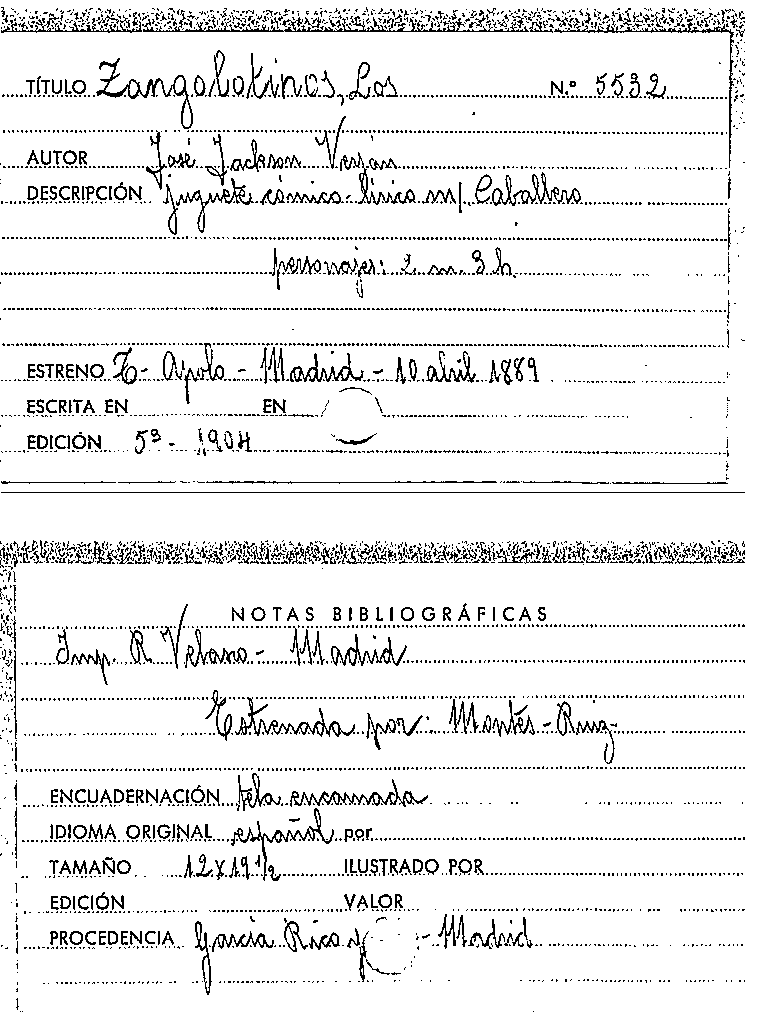 TÍTULO Zangolotinos, Los N.º 5532
AUTOR José Jackson Veyán
DESCRIPCIÓN juguete cómico-lírico m/ Caballero
personajes: 2 m. 3 h.
ESTRENO T- Apolo - Madrid - 10 abril 1889
ESCRITA EN EN
EDICIÓN 5ª - 1904
NOTAS BIBLIOGRÁFICAS
Imp. R. Velasco - Madrid
Estrenada por: Montes - Ruiz
ENCUADERNACIÓN tela encarnada
IDIOMA ORIGINAL español por
TAMAÑO 12 x 19 1/2 ILUSTRADO POR
EDICIÓN VALOR
PROCEDENCIA García Rico y - Madrid